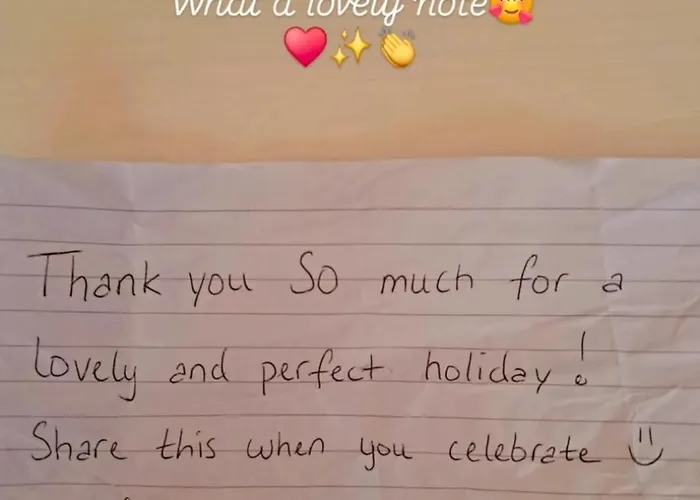 What a lovely note🥰
❤️✨👏
Thank you So much for a
lovely and perfect holiday!
Share this when you celebrate :)